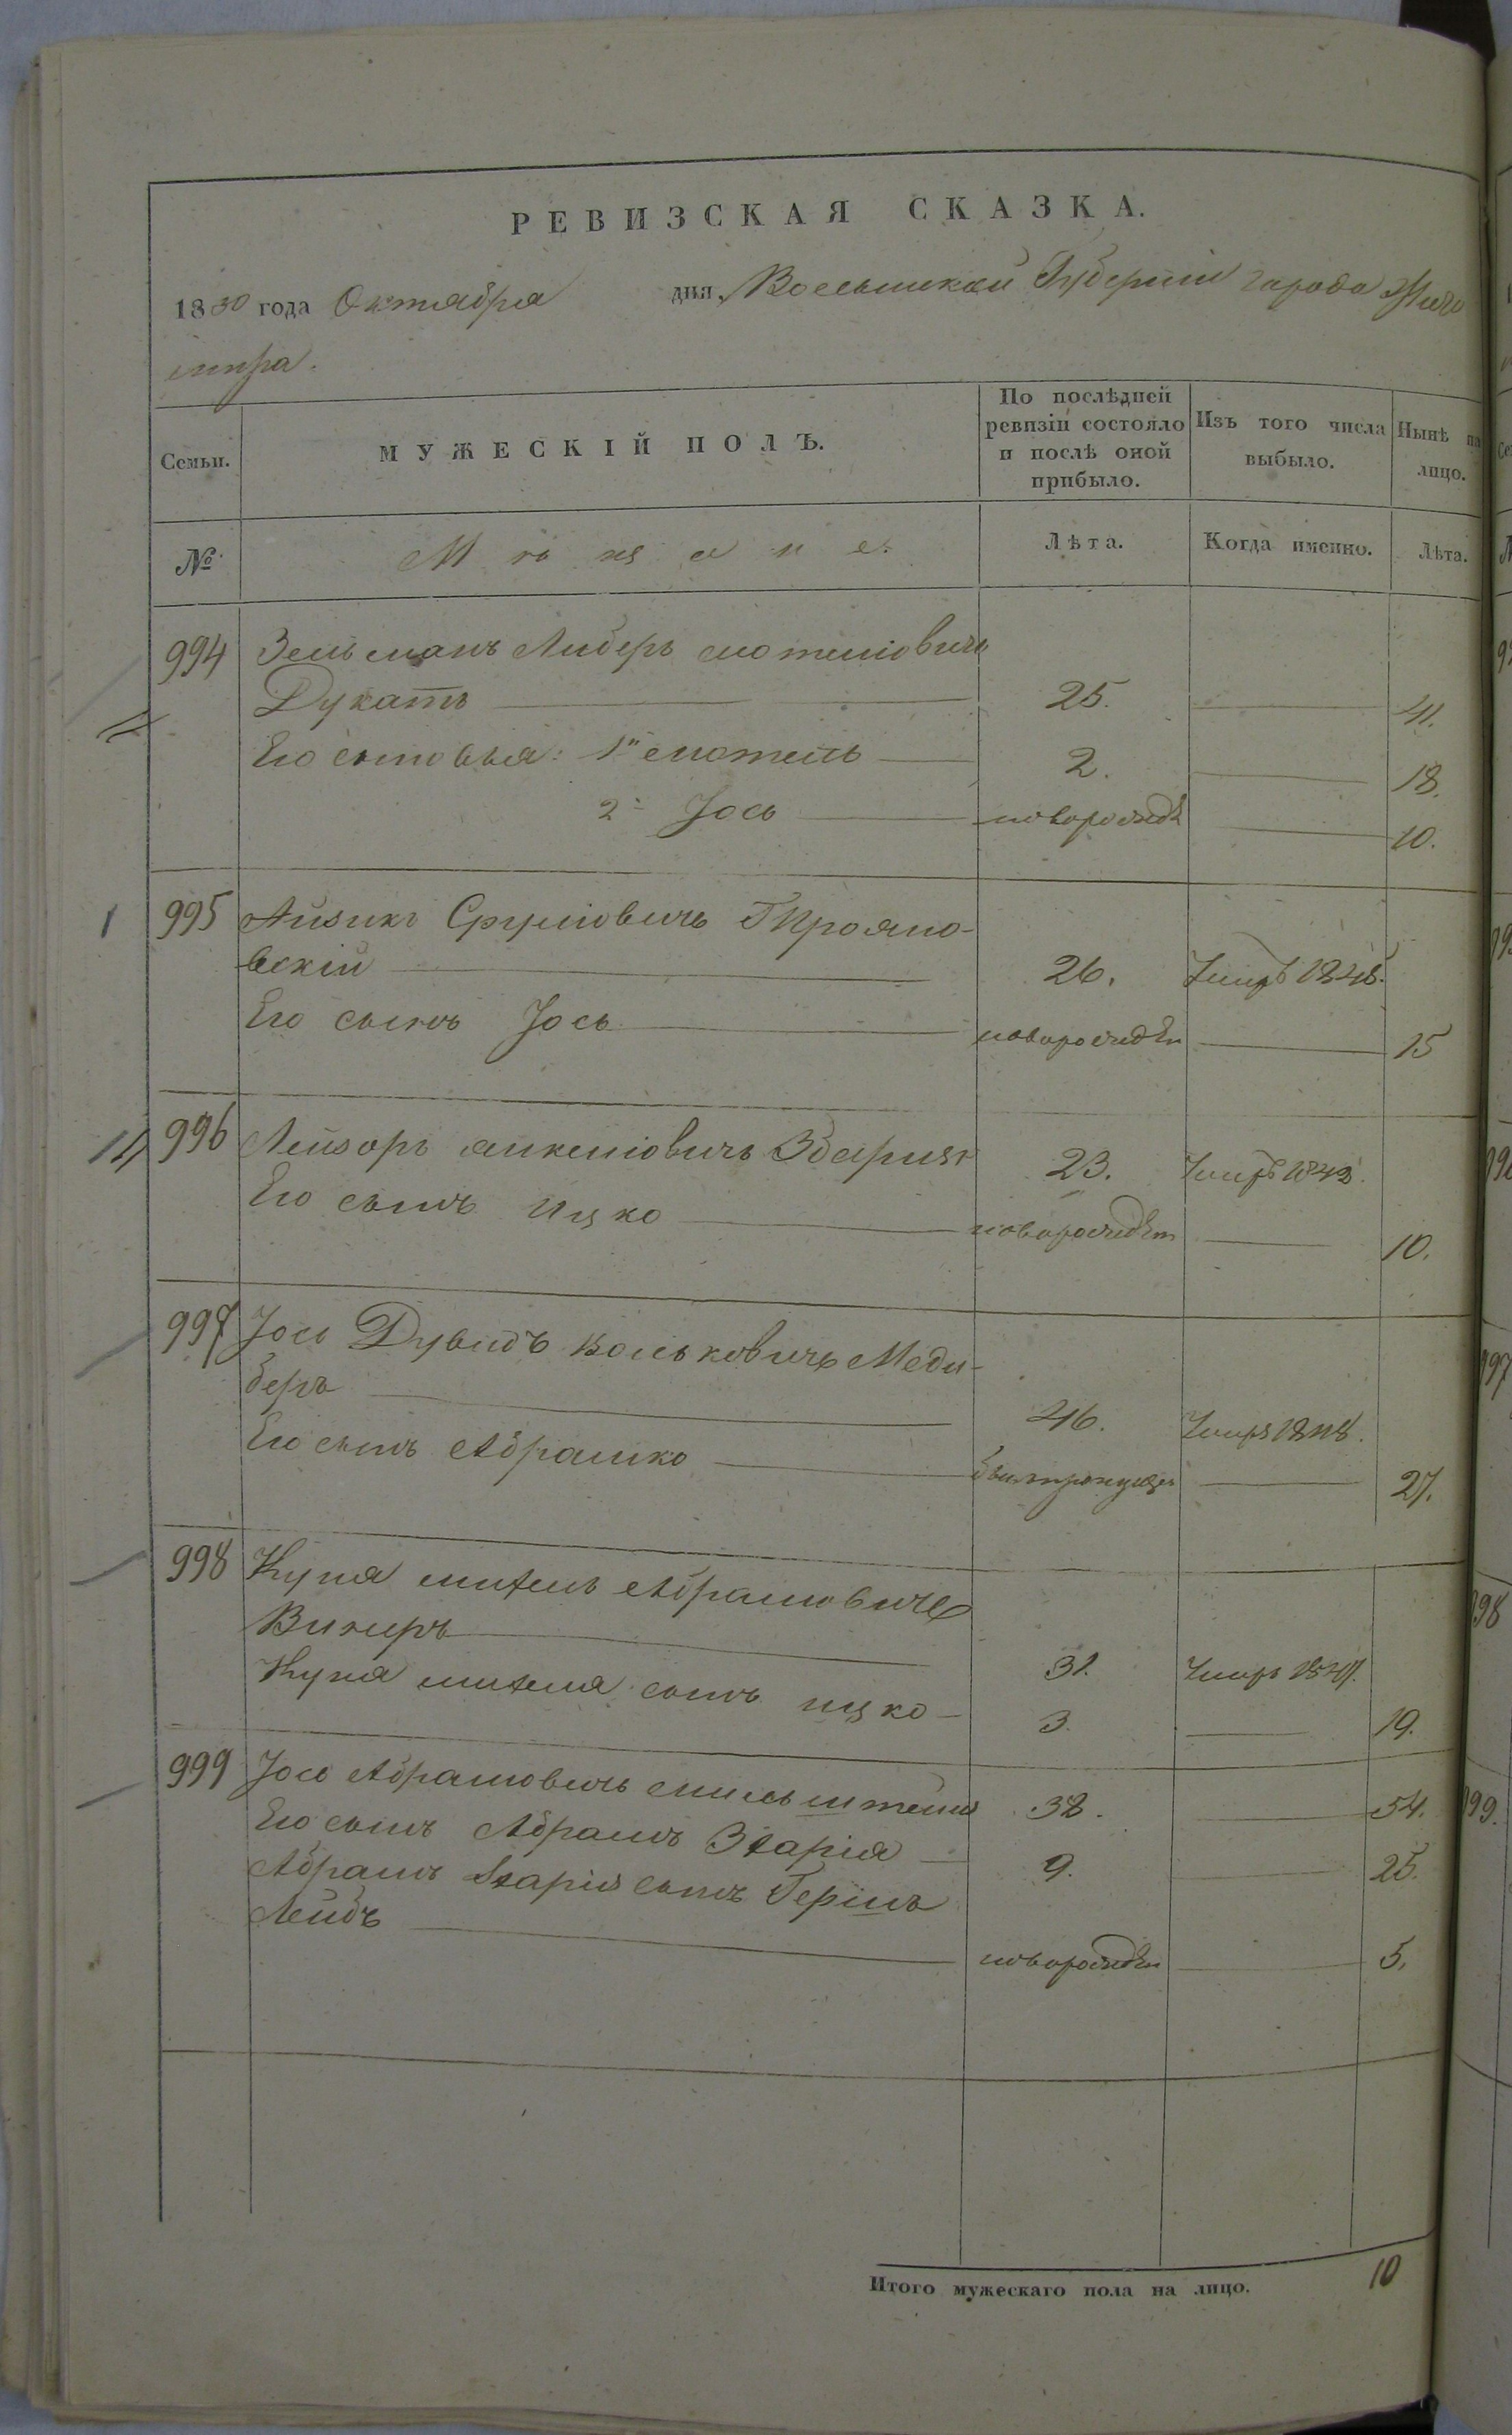 РЕВИЗСКАЯ СКАЗКА.
1850 года Октября дня, Волынской Губерніи города Жито
мира.
Семьи. МУЖЕСКІЙ ПОЛЪ. По послѣдней ревизіи состояло и послѣ оной прибыло. Изъ того числа выбыло. Нынѣ на лицо.
№ Мѣщане. Лѣта. Когда именно. Лѣта.
994 Зельманъ Либеръ Мотелiовичъ
Дукатъ 25. 41.
Его сыновья: 1й Мотель 2. 18.
2й Іось новорожд 10.
995 Айзикъ Сруліовичъ Трояно-
вскій 26. Умеръ 1848.
Его сынъ Іось новорожден 15
996 Лейзоръ Янкеліовичъ Збарцг 23. Умеръ 1842.
Его сынъ Ицко новорожден 10.
997 Іось Дувидъ Вольковичъ Меди-
беръ 46. Умеръ 1848.
Его сынъ Абрашко былъ пропущен 27.
998 Куна Абрамовичъ
31. Умеръ 1847.
Куна сынъ Ицко 3. 19.
999 Іось Абрамовичъ 38. 54.
Его сынъ Абрамъ Зхарія 9. 25.
Абрамъ Зхарія сынъ Гершъ
Лейбъ новорожден 5.
Итого мужескаго пола на лицо. 10